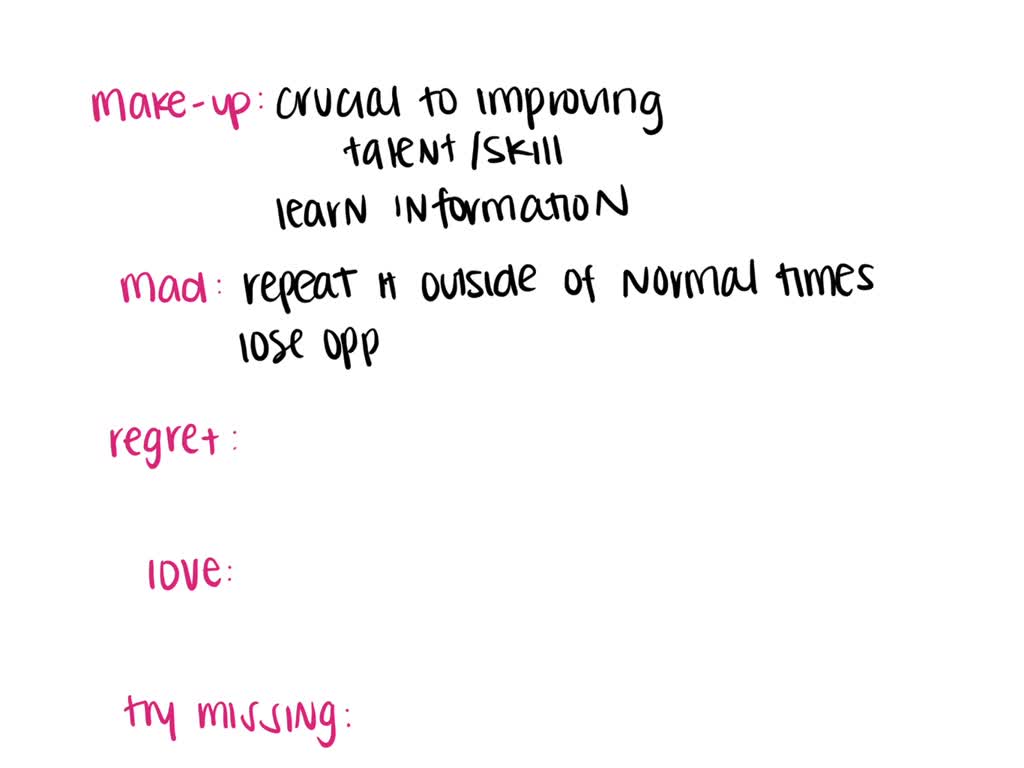 make-up: crucial to improving
talent/skill
learn information
mad: repeat it outside of normal times
lose opp
regret:
love:
try missing: